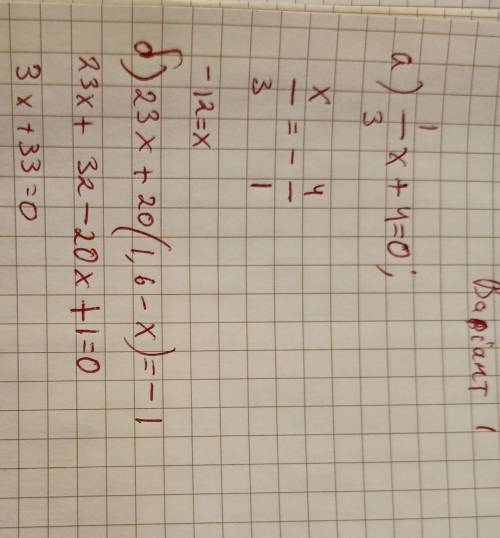 Варіант 1
а) 1/3 x + 4 = 0;
x/3 = - 4/1
-12 = x
б) 23x + 20(1,6 - x) = -1
23x + 32 - 20x + 1 = 0
3x + 33 = 0